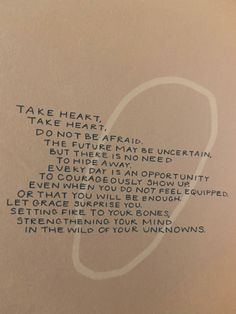 TAKE HEART,
TAKE HEART.
DO NOT BE AFRAID.
THE FUTURE MAY BE UNCERTAIN,
BUT THERE IS NO NEED
TO HIDE AWAY.
EVERY DAY IS AN OPPORTUNITY
TO COURAGEOUSLY SHOW UP.
EVEN WHEN YOU DO NOT FEEL EQUIPPED,
OR THAT YOU WILL BE ENOUGH.
LET GRACE SURPRISE YOU.
SETTING FIRE TO YOUR BONES,
STRENGTHENING YOUR MIND
IN THE WILD OF YOUR UNKNOWNS.